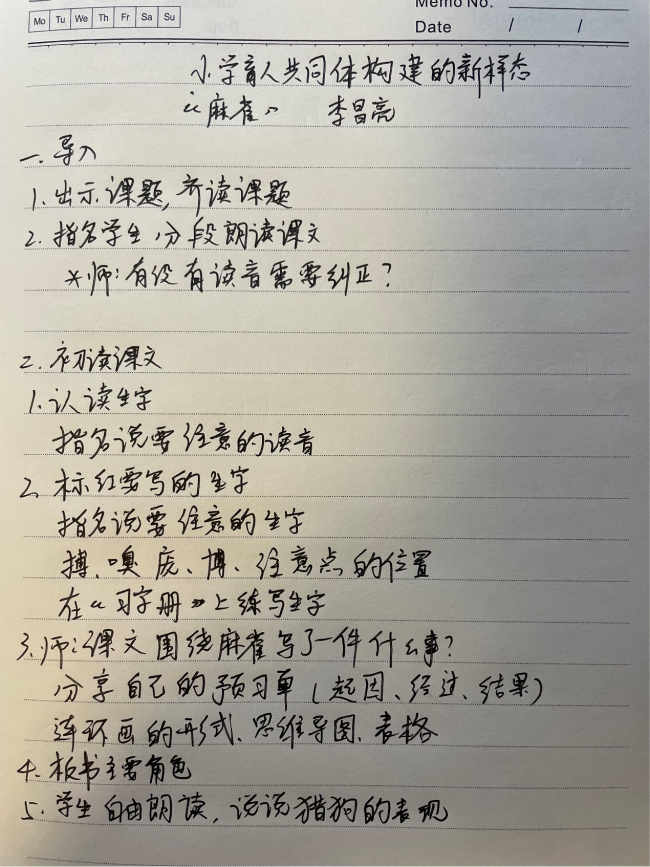 Memo No.
Mo Tu We Th Fr Sa Su
Date / /
小学育人共同体构建的新样态
《麻雀》 李昌亮
一. 导入
1. 出示课题, 齐读课题
2. 指名学生分段朗读课文
*师: 有没有读音需要纠正?
2. 初读课文
1. 认读生字
指名说要注意的读音
2. 标红要写的生字
指名说要注意的生字
搏、嗅 庞、博、注意点的位置
在《习字册》上练写生字
3. 师: 课文围绕麻雀写了一件什么事?
分享自己的预习单(起因、经过、结果)
连环画的形式、思维导图、表格
4. 板书主要角色
5. 学生自由朗读, 说说猎狗的表现